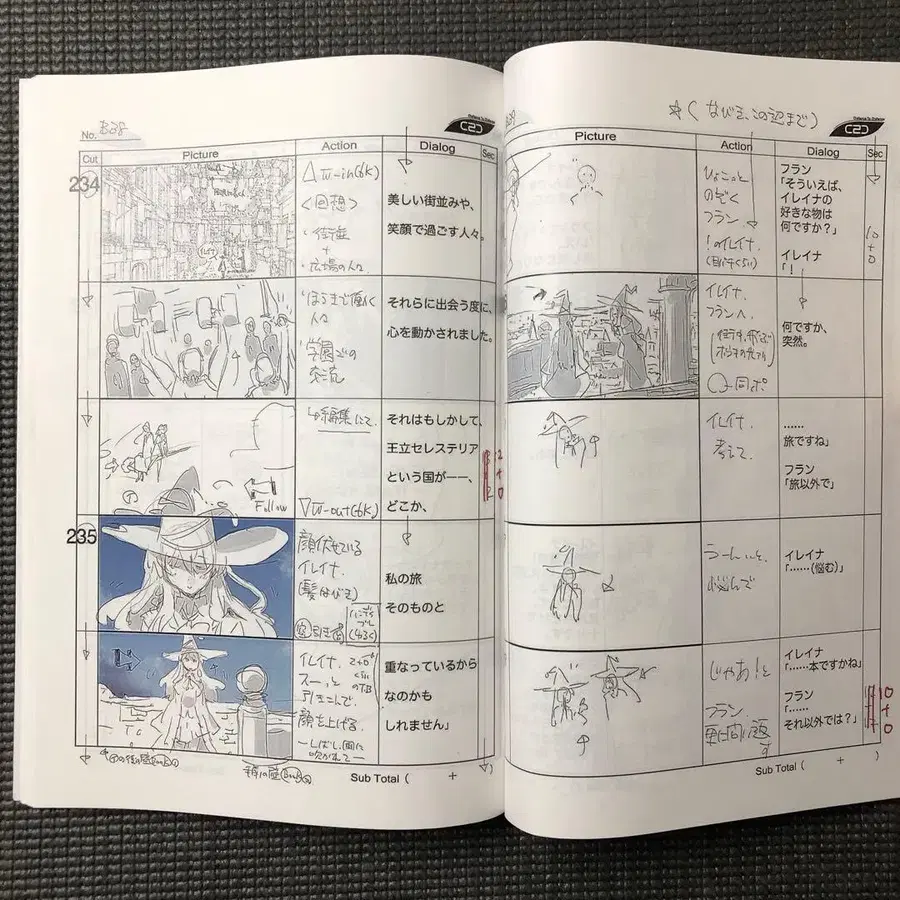 No. B38
C2C
Cut
Picture
Action
Dialog
Sec
234
△W-in(6K)
<回想>
・街並
+
・広場の人々
美しい街並みや、
笑顔で過ごす人々。
・ほうきで働く
人々
・学園での
交流
それらに出会う度に、
心を動かされました。
編集にて。
▽W-out(6K)
Follow
それはもしかして、
王立セレステリア
という国が――、
どこか、
12
+
0
235
顔伏せている
イレイナ.
(髪なびき)
私の旅
そのものと
イレイナ.
スーッと
引きこんで.
顔を上げる.
重なっているから
なのかも
しれません」
Sub Total ( + )
B39
☆( なびき、この辺まで )
C2C
Picture
Action
Dialog
Sec
ひょこっと
のぞく
フラン
!のイレイナ.
フラン
「そういえば、
イレイナの
好きな物は
何ですか?」
イレイナ
「!
10
+
0
イレイナ.
フランへ.
同ポ
何ですか、
突然。
イレイナ.
考えて.
……
旅ですね」
フラン
「旅以外で」
うーんと.
悩んで
イレイナ
「……(悩む)」
じゃあ!と
フラン.
更に問い返す
イレイナ
「……本ですかね」
フラン
「……
それ以外では?」
10
+
0
Sub Total ( + )